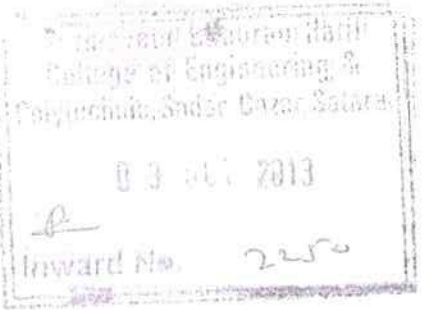 College of Engineering &
Polytechnic, Sadar Bazar, Satara
03 OCT 2013
Inward No. 2250